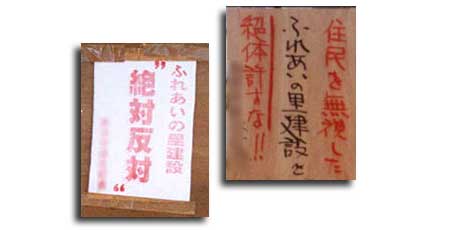 ふれあいの里建設
”絶対反対“
住民を無視した
ふれあいの里建設を
絶体許すな!!